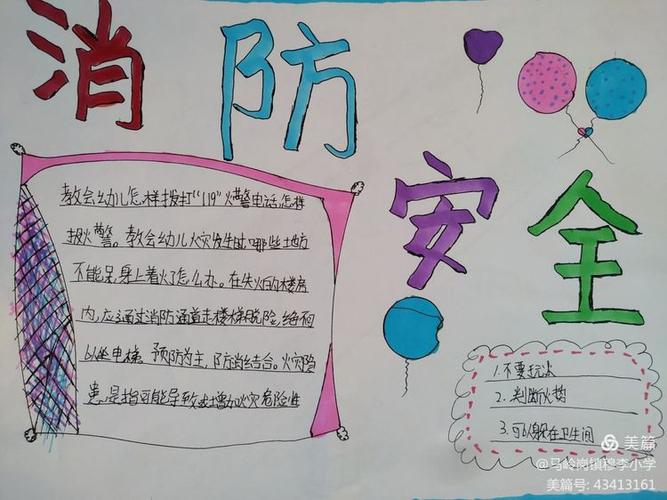 消防
安全
教会幼儿怎样拨打“119”火警电话,怎样
报火警。教会幼儿火灾发生时,哪些地方
不能呆,身上着火了怎么办。在失火的楼房
内,应通过消防通道走楼梯脱险,绝不可
以坐电梯。预防为主,防消结合。火灾隐
患,是指可能导致或增加火灾危险性
1.不要玩火
2.判断火势
3.可以躲在卫生间
美篇
@马岭岗镇穆李小学
美篇号: 43413161